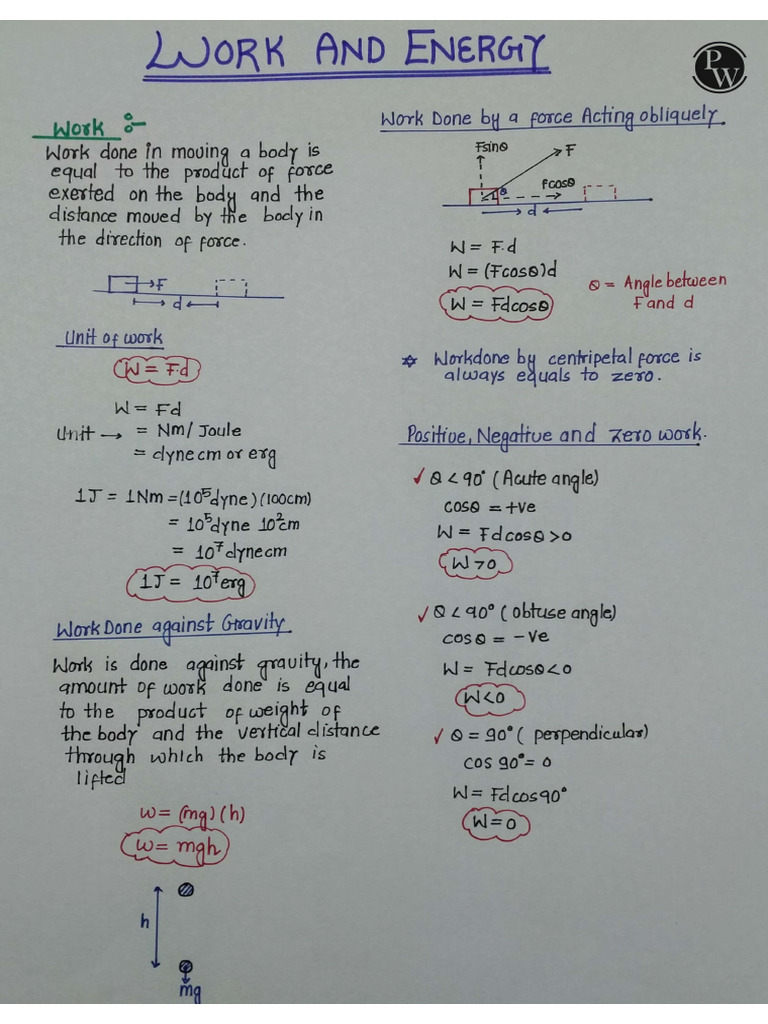 WORK AND ENERGY
PW
Work :-
Work done in moving a body is
equal to the product of force
exerted on the body and the
distance moved by the body in
the direction of force.
F
d
Unit of work
W = Fd
W = Fd
Unit → = Nm/ Joule
= dyne cm or erg
1J = 1Nm = (10⁵dyne)(100cm)
= 10⁵dyne 10²cm
= 10⁷dyne cm
1J = 10⁷erg
Work Done against Gravity
Work is done against gravity, the
amount of work done is equal
to the product of weight of
the body and the vertical distance
through which the body is
lifted
W = (mg)(h)
W = mgh
h
mg
Work Done by a force Acting obliquely
Fsinθ
F
θ
Fcosθ
d
W = F.d
W = (Fcosθ)d
W = Fdcosθ
θ = Angle between
F and d
☆ Workdone by centripetal force is
always equals to zero.
Positive, Negative and Zero work.
✓ θ < 90° (Acute angle)
cosθ = +ve
W = Fdcosθ>0
W>0
✓ θ < 90° (Obtuse angle)
cosθ = -ve
W = Fdcosθ<0
W<0
✓ θ = 90° ( perpendicular)
cos 90° = 0
W = Fdcos90°
W=0